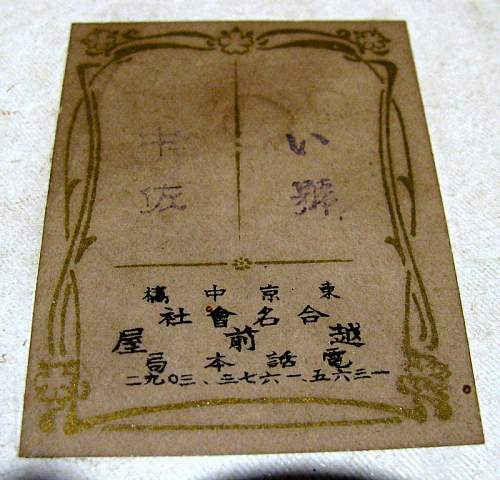 い號
佐
東京中橋
合名會社
越前屋
電話本局
一三六五、一六七三、三〇九二